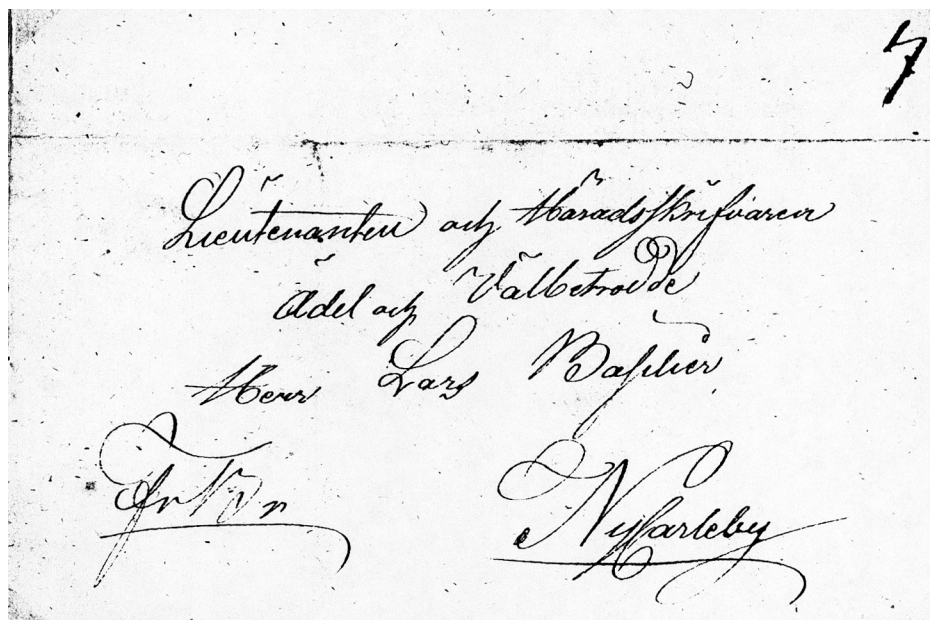 7
Lieutenanten och Häradsskrifvaren
Ädel och Välbetrodde
Herr Lars
NyCarleby